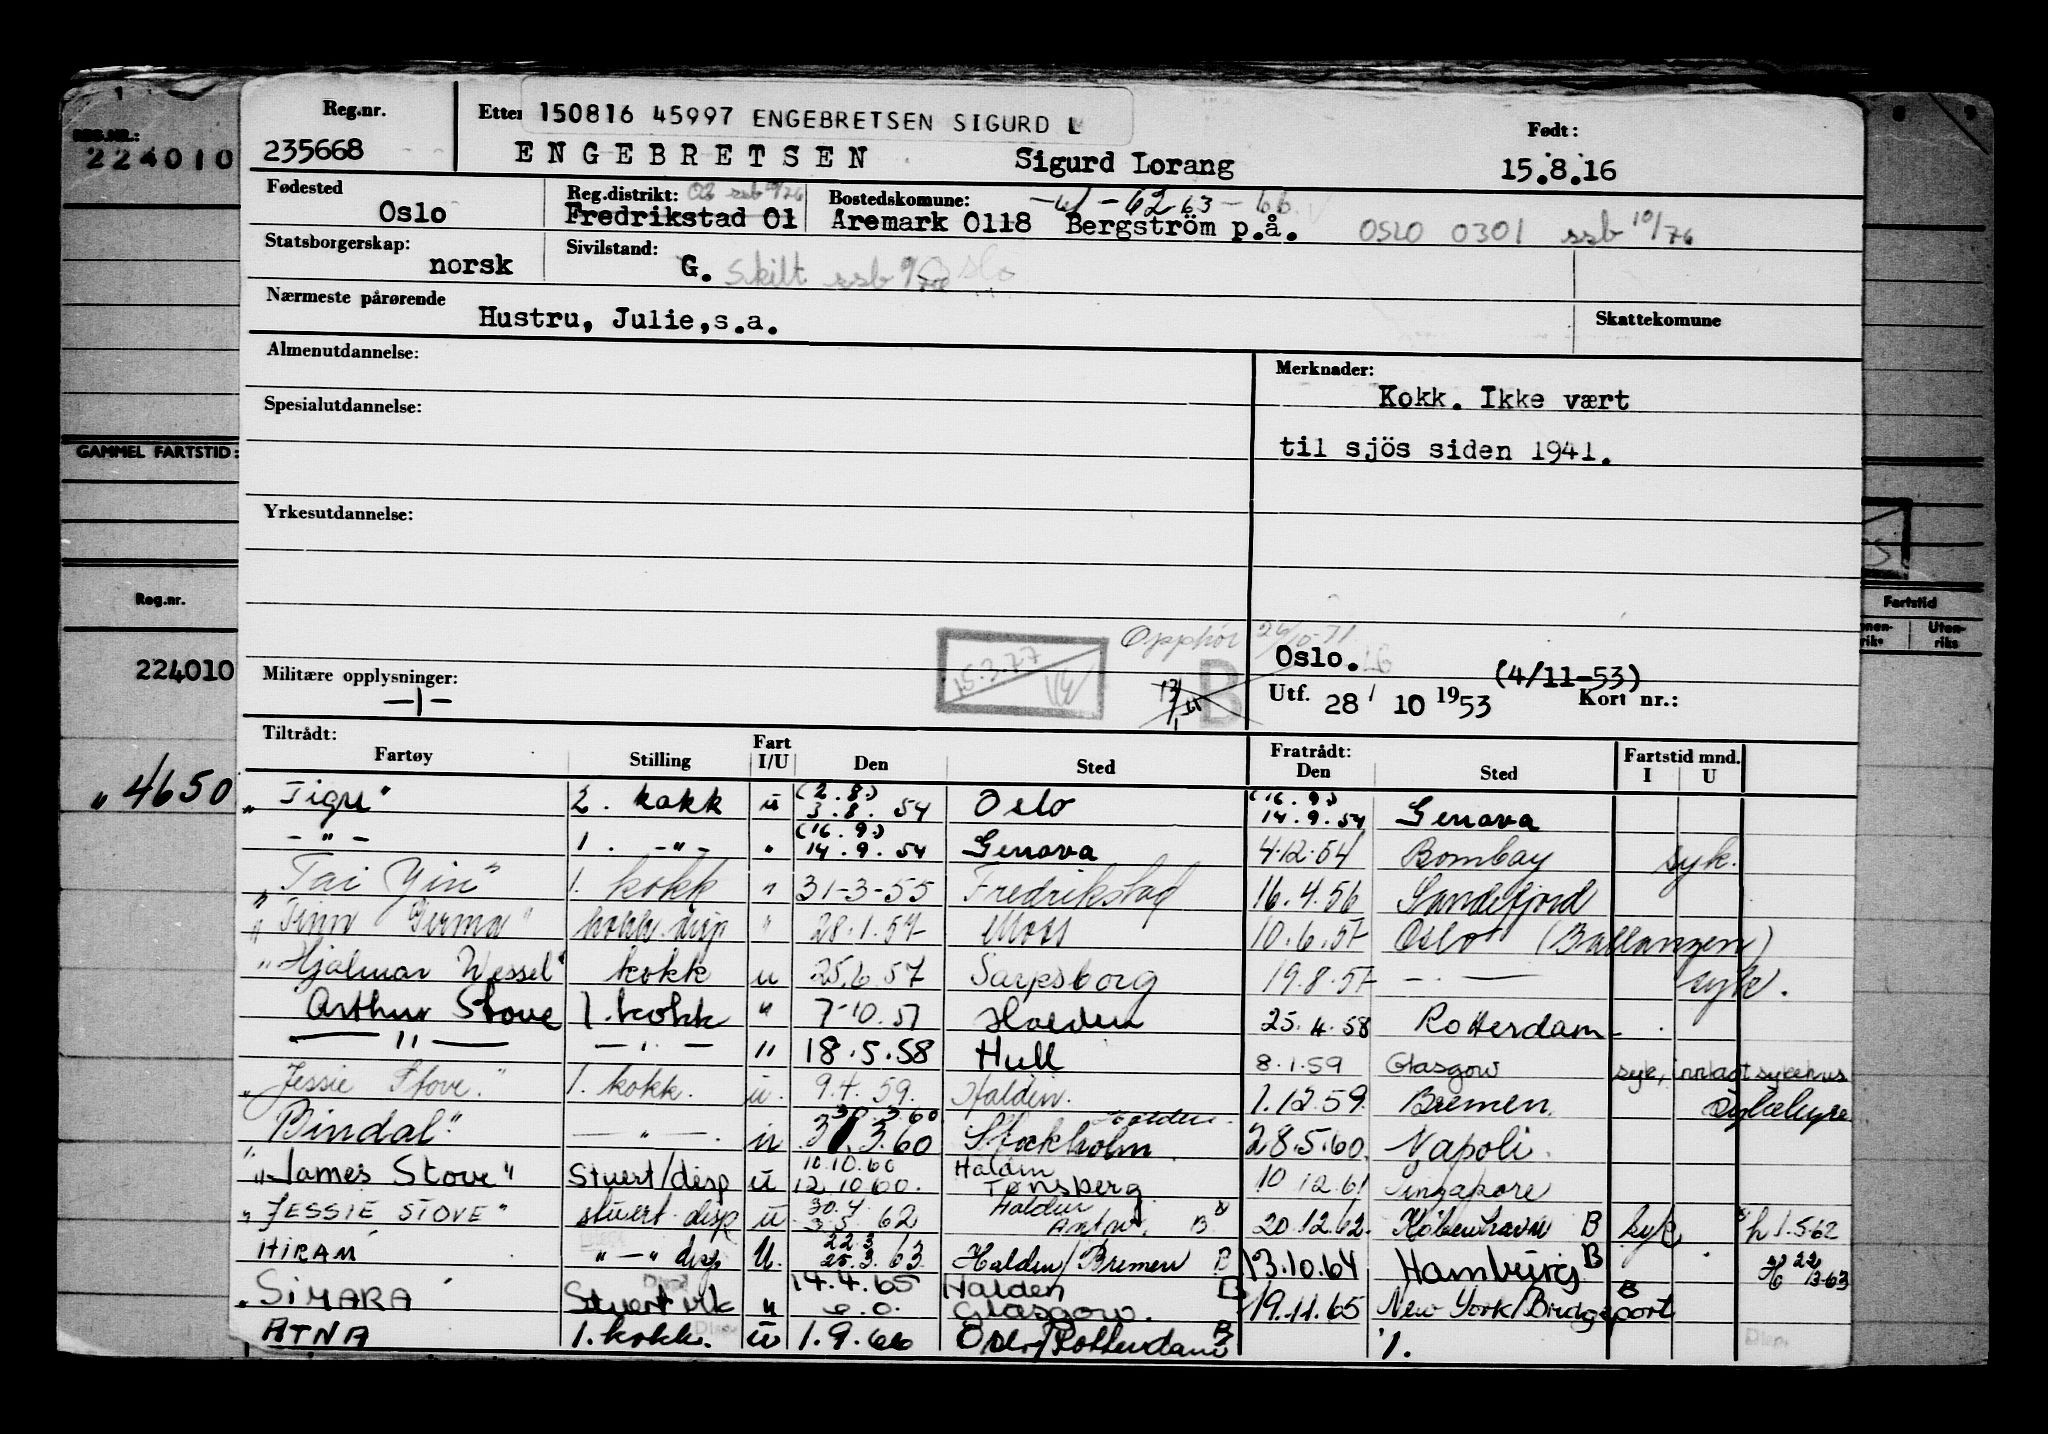 Reg.nr. Etter 150816 45997 ENGEBRETSEN SIGURD L Født:
235668 ENGEBRETSEN Sigurd Lorang 15.8.16
REG.NR.:
224010
Fødested Reg.distrikt: 02 ssb 10/76 Bostedskomune: -61 -62 63 -66
Oslo Fredrikstad 01 Aremark 0118 Bergström p.å. OSLO 0301 ssb 10/76
Statsborgerskap: Sivilstand:
norsk G. Skilt ssb Oslo
Nærmeste pårørende
Hustru, Julie,s.a. Skattekomune
Almenutdannelse: Merknader:
Kokk. Ikke vært
Spesialutdannelse:
til sjös siden 1941.
GAMMEL FARTSTID:
Yrkesutdannelse:
Reg.nr. Fartstid
Innen-riks Uten-riks
Opphør 26/10-71
Oslo.
224010
Militære opplysninger: 15.3.77 B Utf. 28/10 1953 (4/11-53) Kort nr.:
-|-
Tiltrådt: Fratrådt:
Fartøy Stilling Fart I/U Den Sted Den Sted Fartstid mnd. I U
" 4650
"Tigre" 2. kokk u (2.8.) 3.8.54 Oslo (16.9.) 14.9.54 Genova
-"- 1. -"- " (16.9.) 14.9.54 Genova 4.12.54 Bombay syk.
"Tai Yin" 1. kokk " 31-3-55 Fredrikstad 16.4.56 Sandefjord
"Finn Germa" kokk disp " 28.1.57 Moss 10.6.57 Oslo (Ballangen)
"Hjalmar Wessel" kokk u 25.6.57 Sarpsborg 19.8.57 -"- syk.
Arthur Stove 1. kokk " 7-10.57 Halden 25.4.58 Rotterdam
-"- -"- " 18.5.58 Hull 8.1.59 Glasgow syk, innlagt sykehus
"Jessie Stove." 1. kokk. u. 9.4.59. Halden. 1.12.59. Bremen. Sykehyre
"Bindal". -"-. u 30.3.60 31.3.60 Halden. Stockholm. 28.5.60. Napoli.
"James Stove" Stuert/disp u 10.10.60 12.10.60. Halden Tønsberg 10.12.61 Singapore
"JESSIE STOVE" stuert disp u 30.4 3.5.62 Halden Antw. B 20.12.62. København B syk h 1.5.62
HIRAM "-" disp U. 22.3 25.3.63 Halden/Bremen B 13.10.64 Hamburg B H 22/3-63
SIMARA Stuert vik " 14.4.65 Halden B Glasgow. 19.11.65 New York/Bridgeport B
ATNA 1. kokk. u 1.9.66 Oslo/Rotterdam B